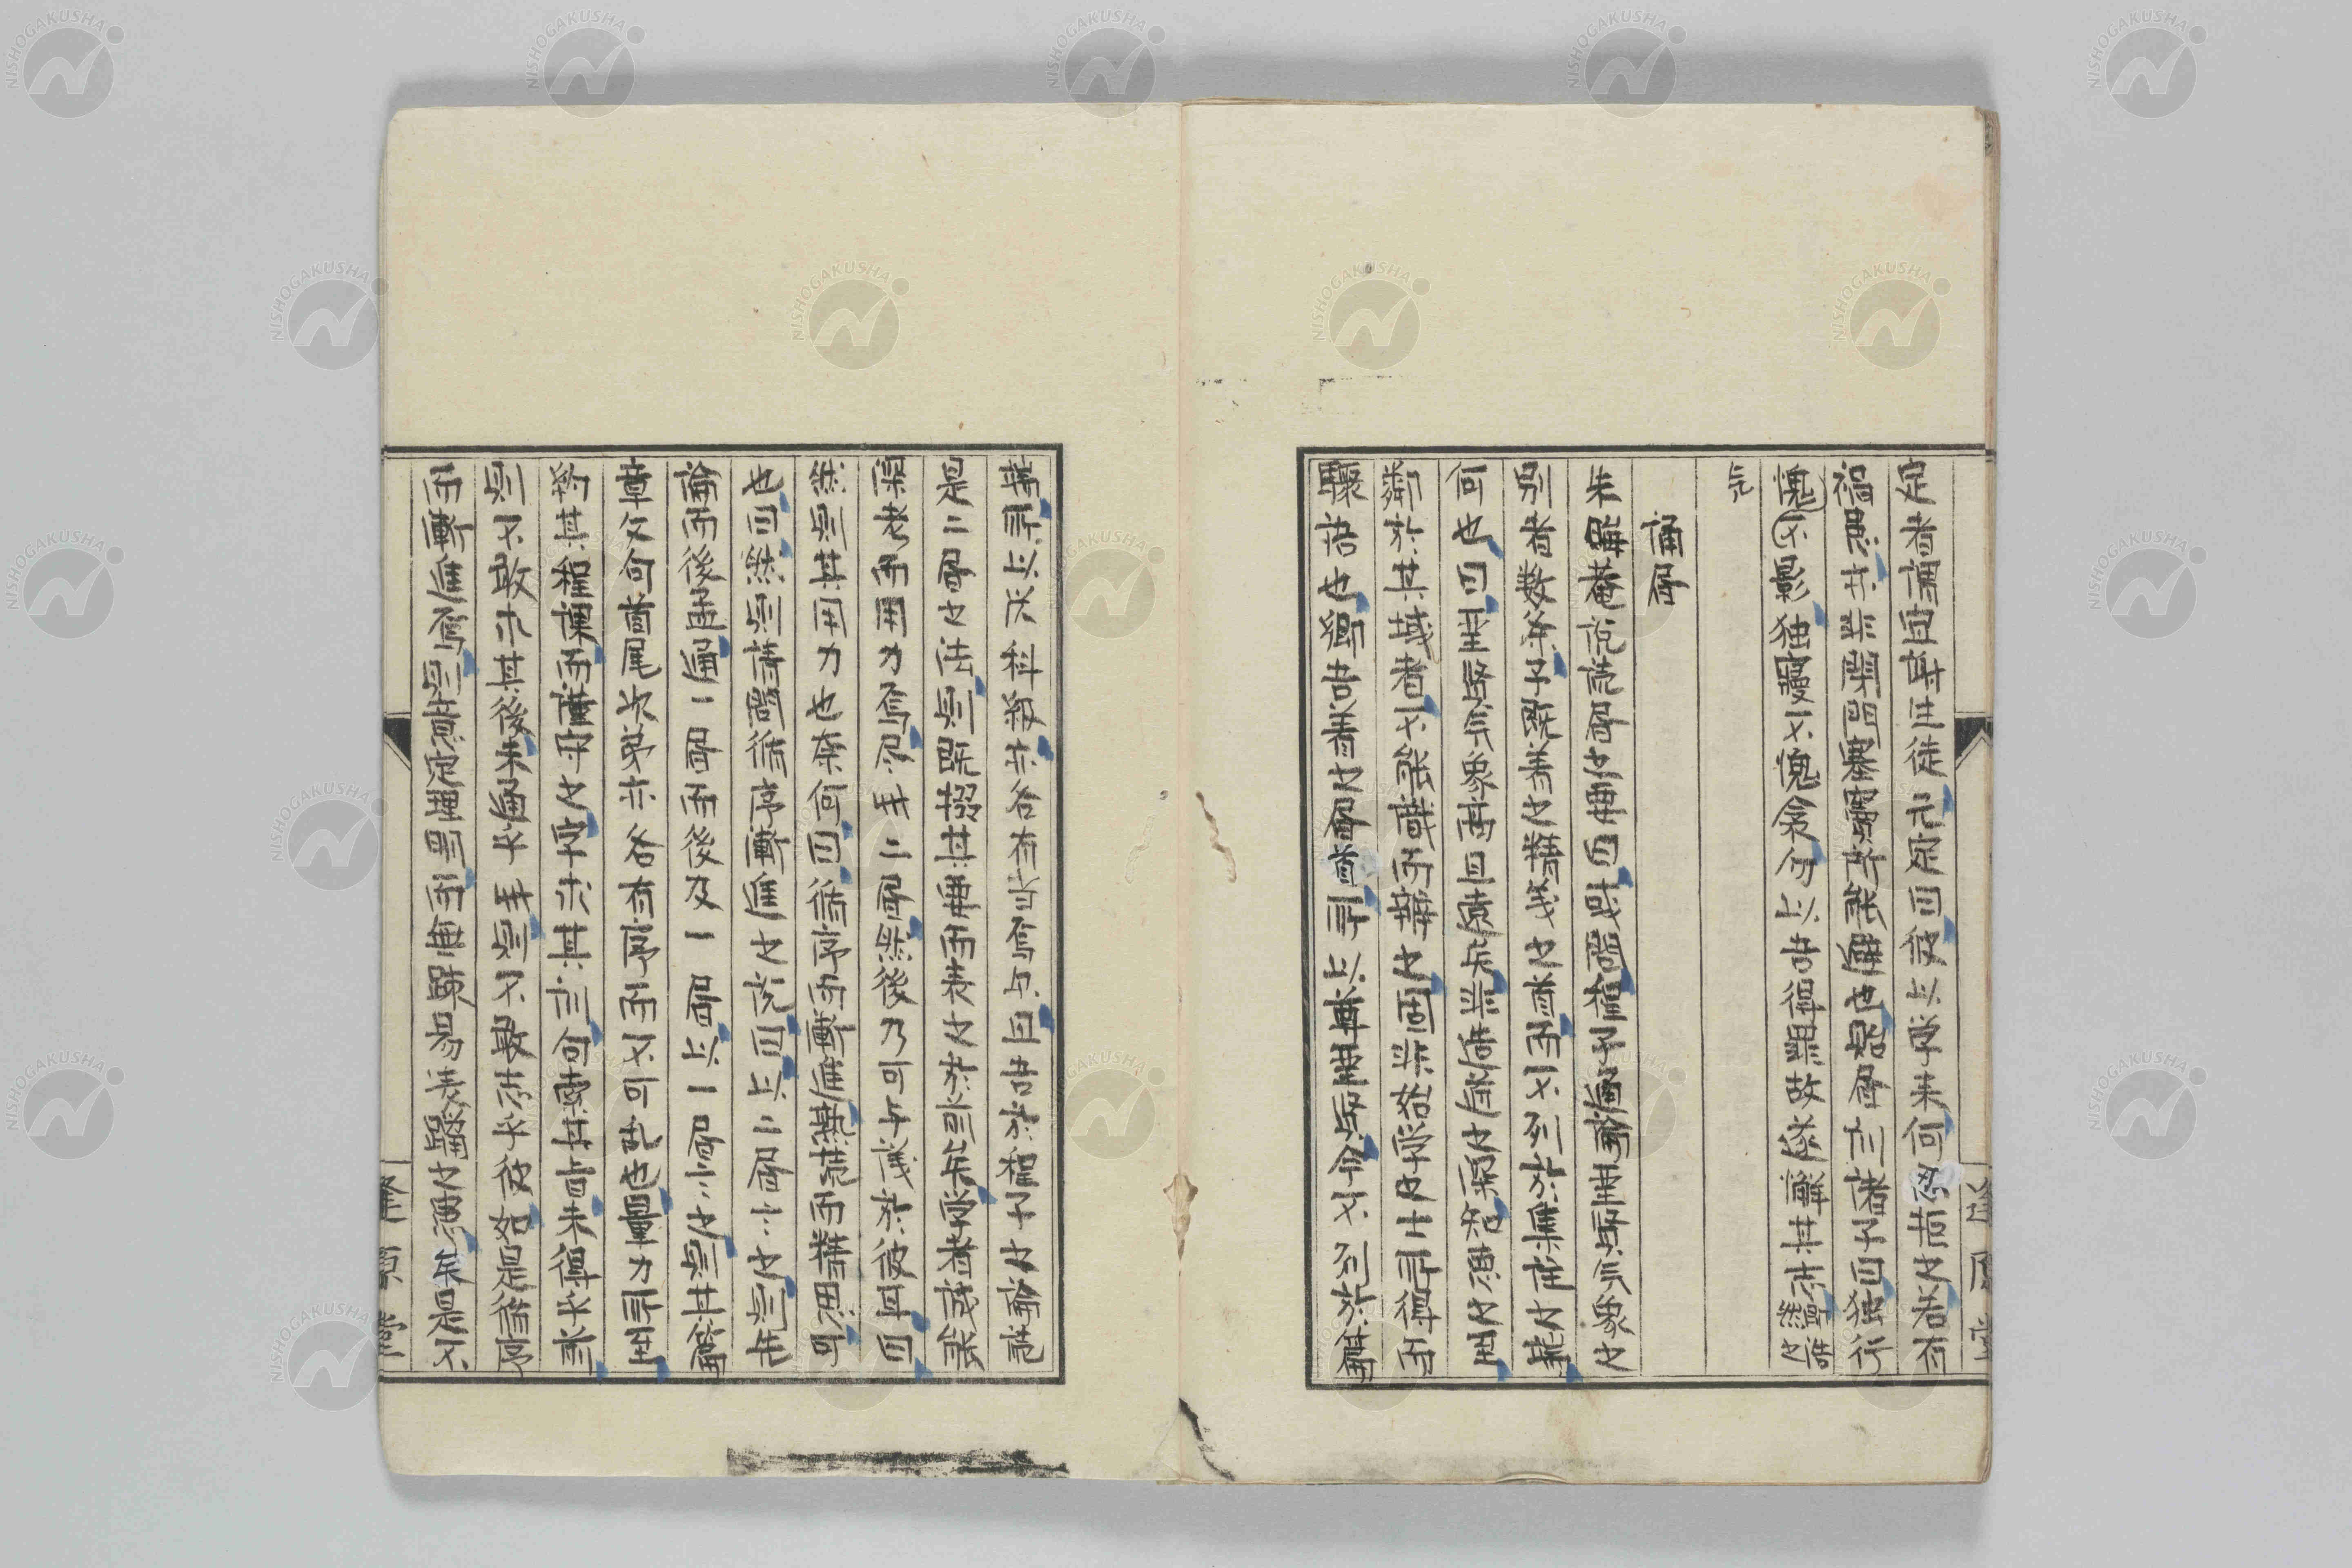 定者謂宜辞生徒元定曰彼以学来何忍拒之若有
禍患亦非閉門塞竇所能避也貽書訓諸子曰独行
不愧影独寝不愧衾勿以吾得罪故遂懈其志
元
誦書
朱晦菴説読書之要曰或問程子通論聖賢気象之
別者数条子既著之精義之首而不列於集註之端
何也曰聖賢気象高且遠矣非造道之深知徳之至
鄰於其域者不能識而辨之固非始学之士所得而
驟語也郷吾著之書首所以尊聖賢今不列於篇
端所以严科級亦各有当焉爾且吾於程子之論読
是二書之法則既掇其要而表之於前矣学者誠能
深考而用力焉尽此二書然後乃可与議於彼耳曰
然則其用力也奈何曰循序而漸進熟読而精思可
也曰然則請問循序漸進之説曰以二書言之則先
論而後孟通一書而後及一書以一書言之則其篇
章文句首尾次第亦各有序而不可乱也量力所至
約其程課而謹守之字求其訓句索其旨未得乎前
則不敢求其後未通乎此則不敢志乎彼如是循序
而漸進焉則意定理明而無疎易凌躐之患矣是不